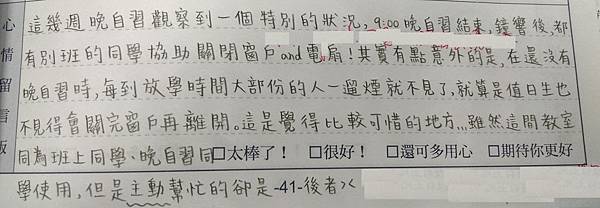 心情留言版
這幾週晚自習觀察到一個特別的狀況，9:00晚自習結束，鐘響後，都
有別班的同學協助關閉窗戶and電扇！其實有點意外的是，在還沒有
晚自習時，每到放學時間大部份的人一遛煙就不見了，就算是值日生也
不見得會關完窗戶再離開。這是覺得比較可惜的地方...雖然這間教室
同為班上同學、晚自習同 □太棒了！ □很好！ □還可多用心 □期待你更好
學使用，但是主動幫忙的卻是-41-後者><